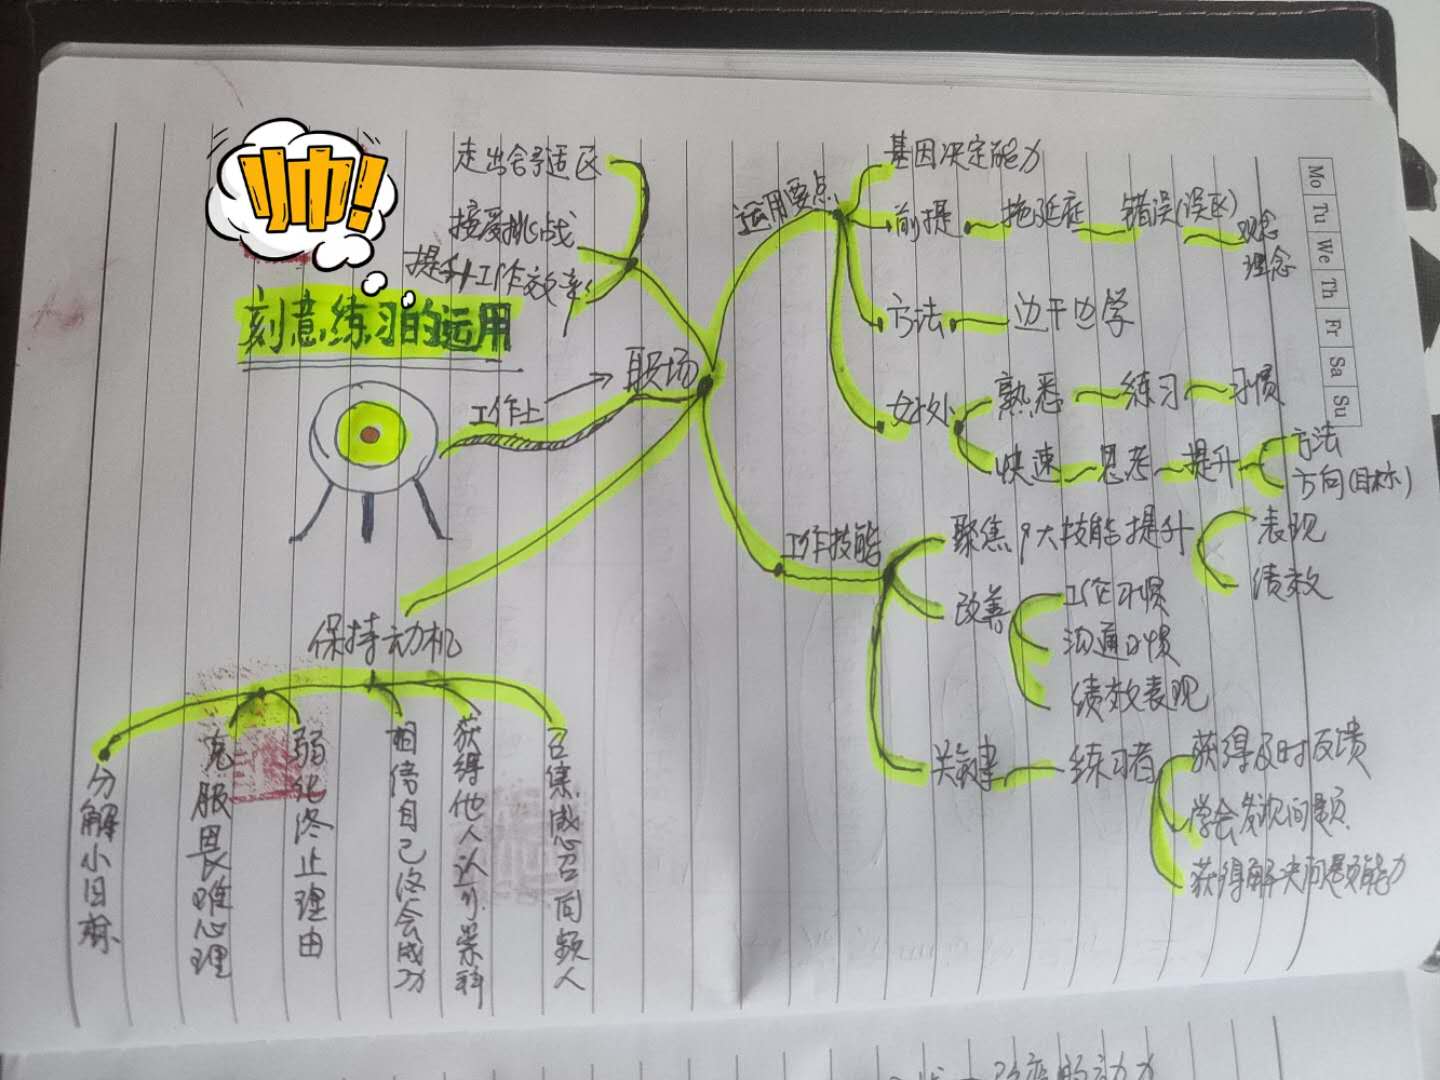 帅!
刻意练习的运用
工作上
职场
走出舒适区
接受挑战
提升工作效率
运用要点
基因决定能力
前提
拖延症
错误(误区)
观念
理念
方法
边干边学
好处
熟悉
练习
习惯
快速
思考
提升
方法
方向(目标)
工作技能
聚焦
大技能提升
表现
绩效
改善
工作习惯
沟通习惯
绩效表现
关键
练习者
获得及时反馈
学会发现问题
获得解决问题能力
保持动机
分解小目标
克服畏难心理
弱化终止理由
相信自己终会成功
获得他人认可
召集感召同频人
Mo
Tu
We
Th
Fr
Sa
Su